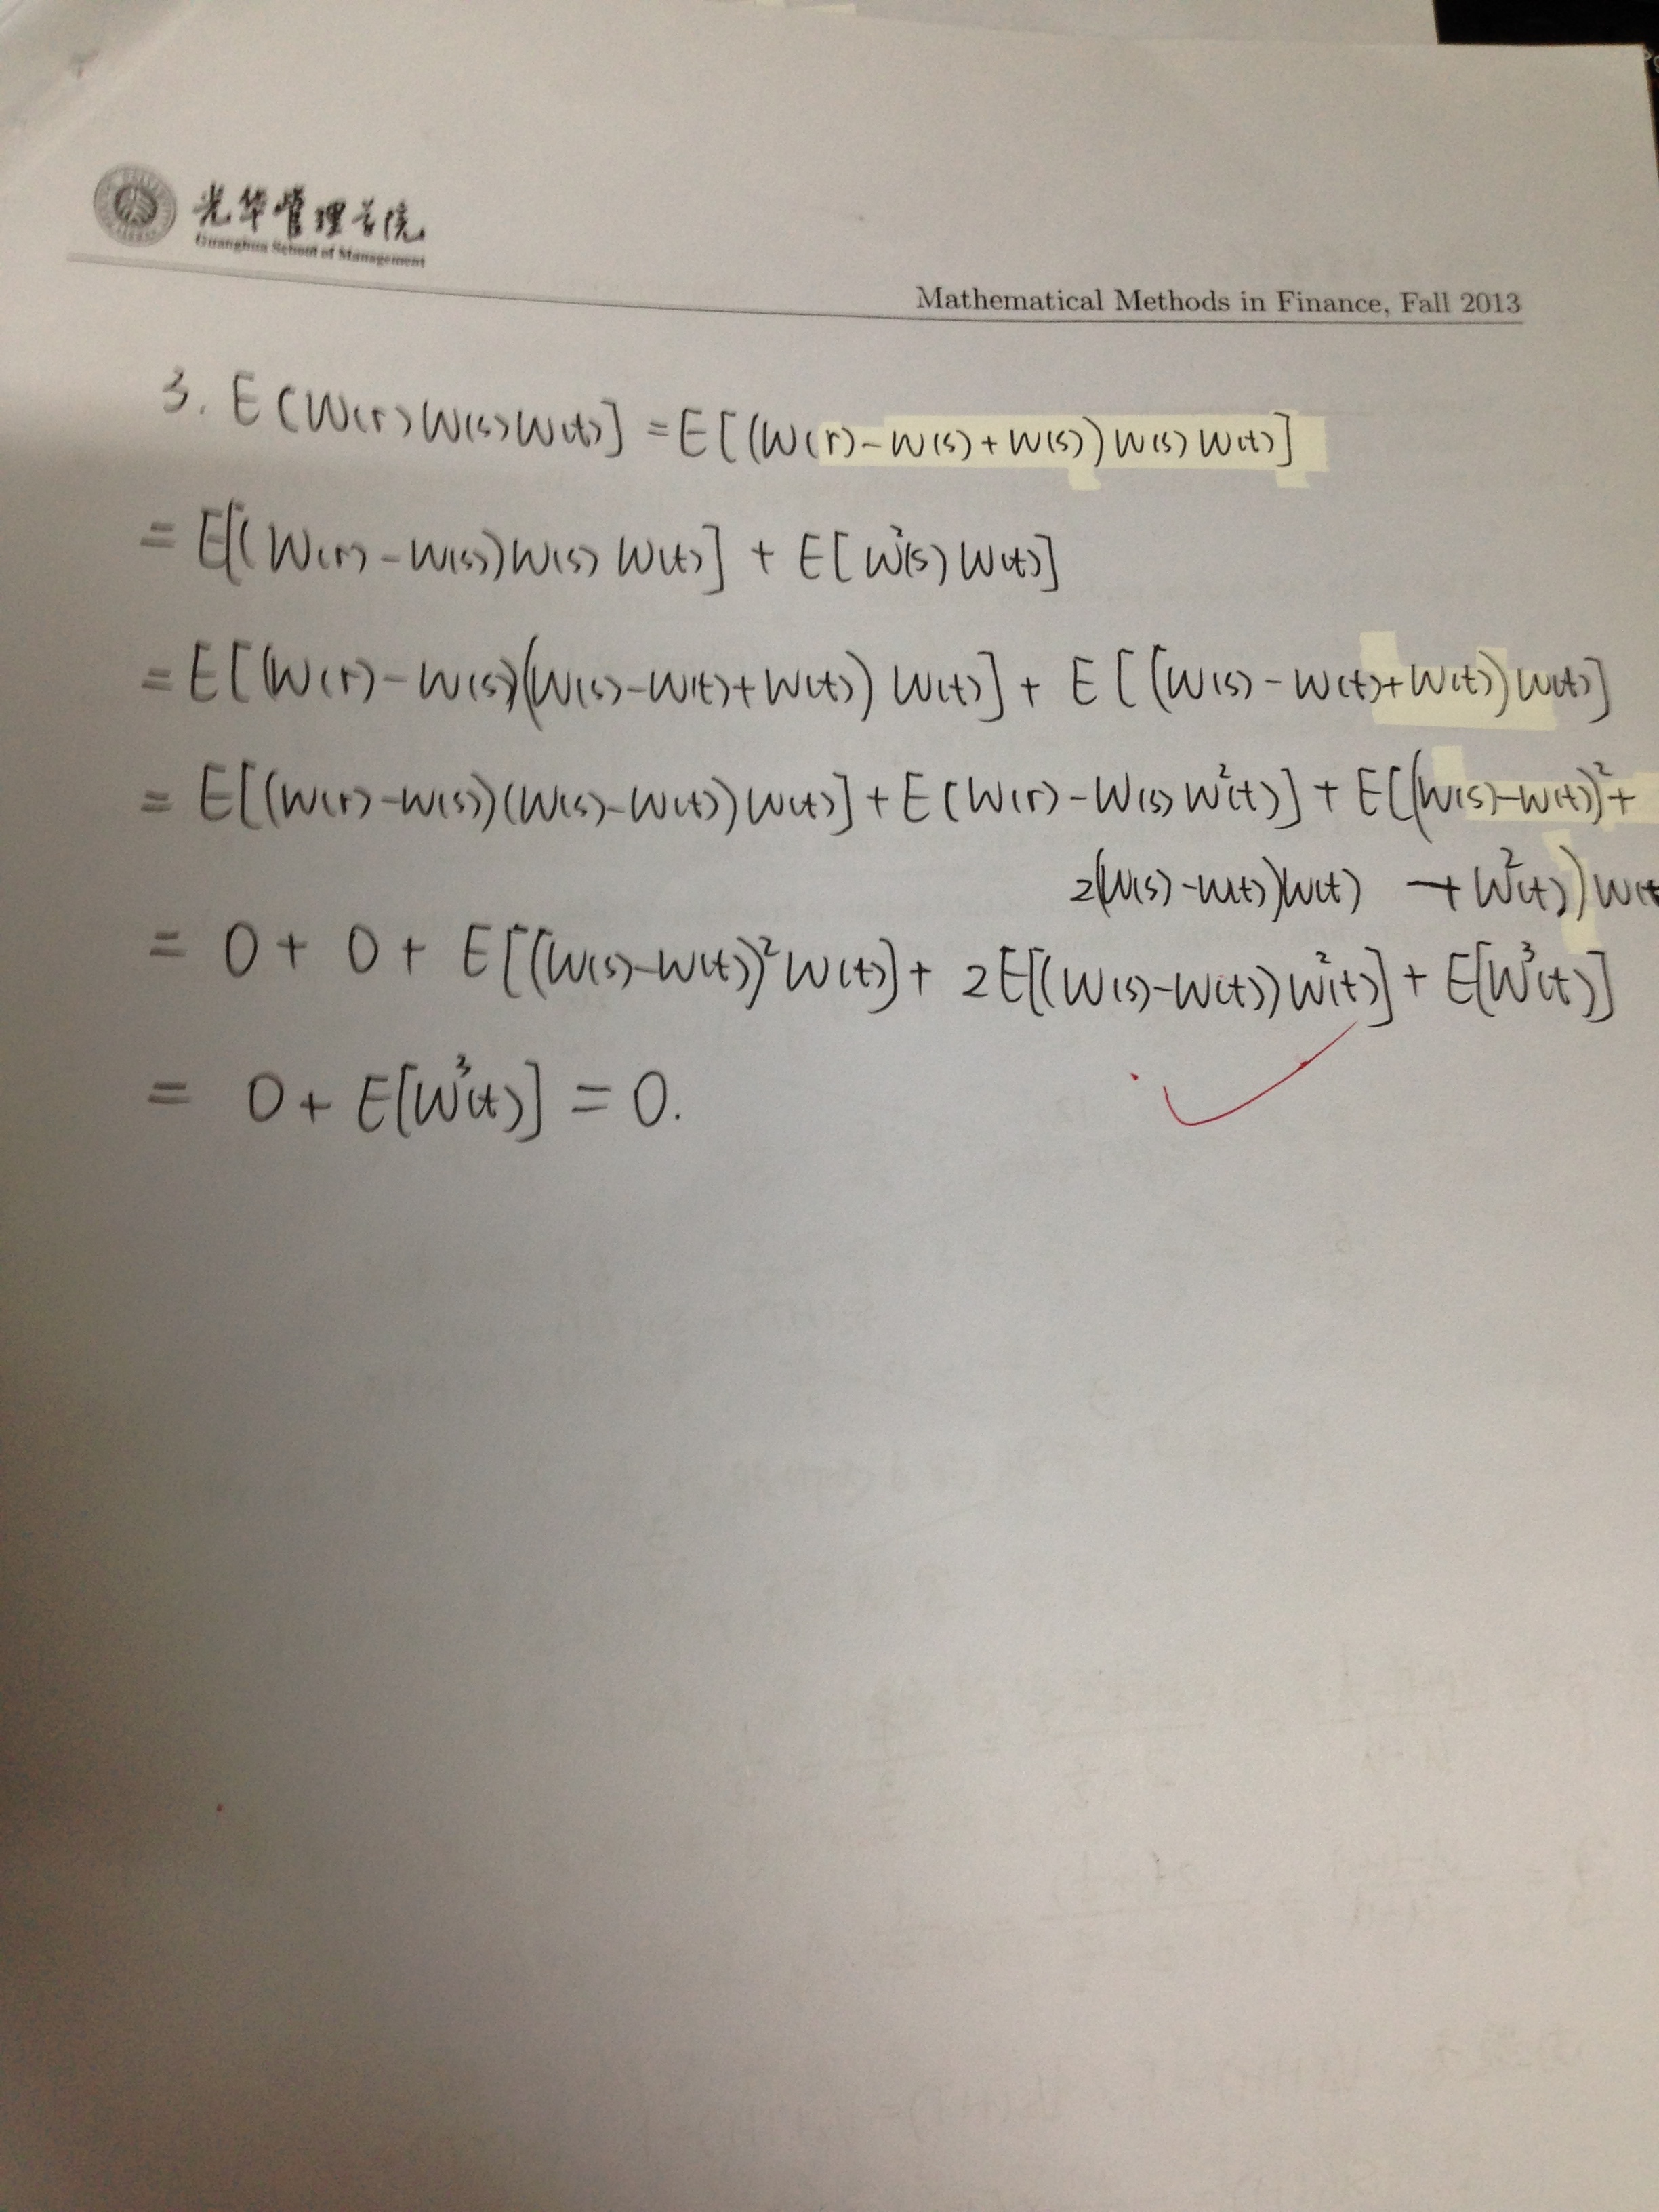 光华管理学院
Guanghua School of Management
Mathematical Methods in Finance, Fall 2013
3. E[W(r)W(s)W(t)] = E[(W(r)-W(s)+W(s))W(s)W(t)]
= E[(W(r)-W(s))W(s)W(t)] + E[W²(s)W(t)]
= E[(W(r)-W(s)(W(s)-W(t)+W(t))W(t)] + E[(W(s)-W(t)+W(t))W(t)]
= E[(W(r)-W(s))(W(s)-W(t))W(t)] + E(W(r)-W(s)W²(t)] + E[(W(s)-W(t))²+
2(W(s)-W(t))W(t) + W²(t))W(t
= 0 + 0 + E[(W(s)-W(t))²W(t)] + 2E[(W(s)-W(t))W²(t)] + E[W³(t)]
= 0 + E[W³(t)] = 0.